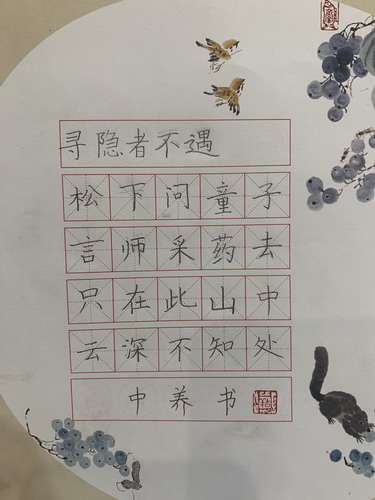 寻隐者不遇
松下问童子
言师采药去
只在此山中
云深不知处
中养书